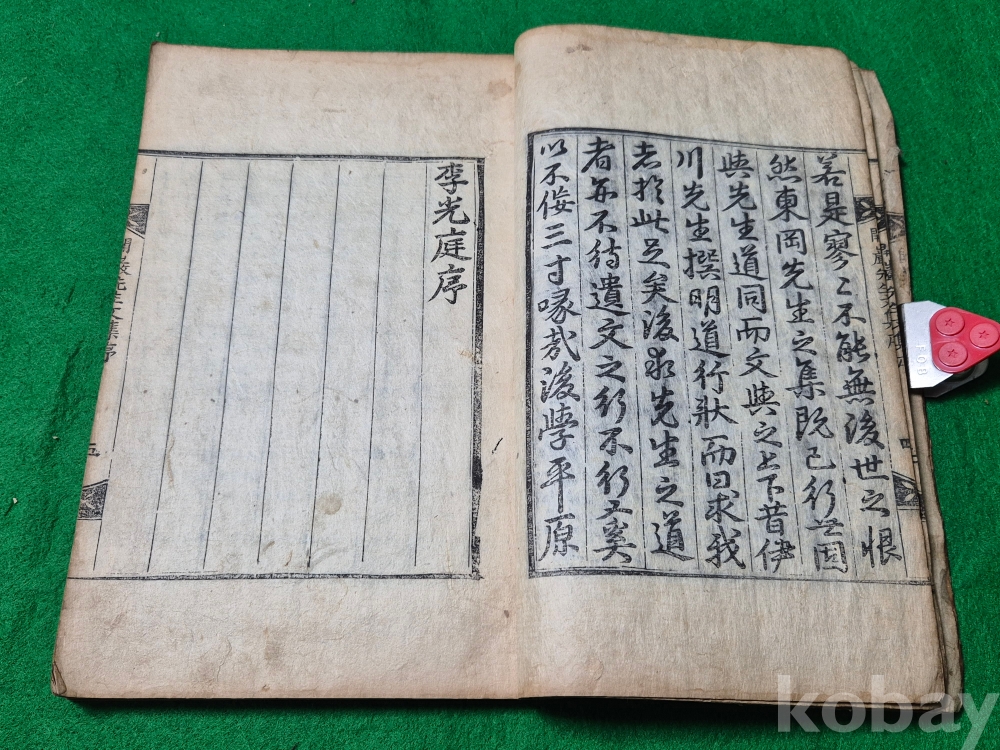 若是寥〻不能無後世之恨
然東岡先生之集既已行世因
與先生道同而文與之上下昔伊
川先生撰明道行狀而曰求我
者於此足矣後求先生之道
者亦不待遺文之行不行
以不侫三寸喙哉後學平原
李光庭序
先生文集序
五
kobay